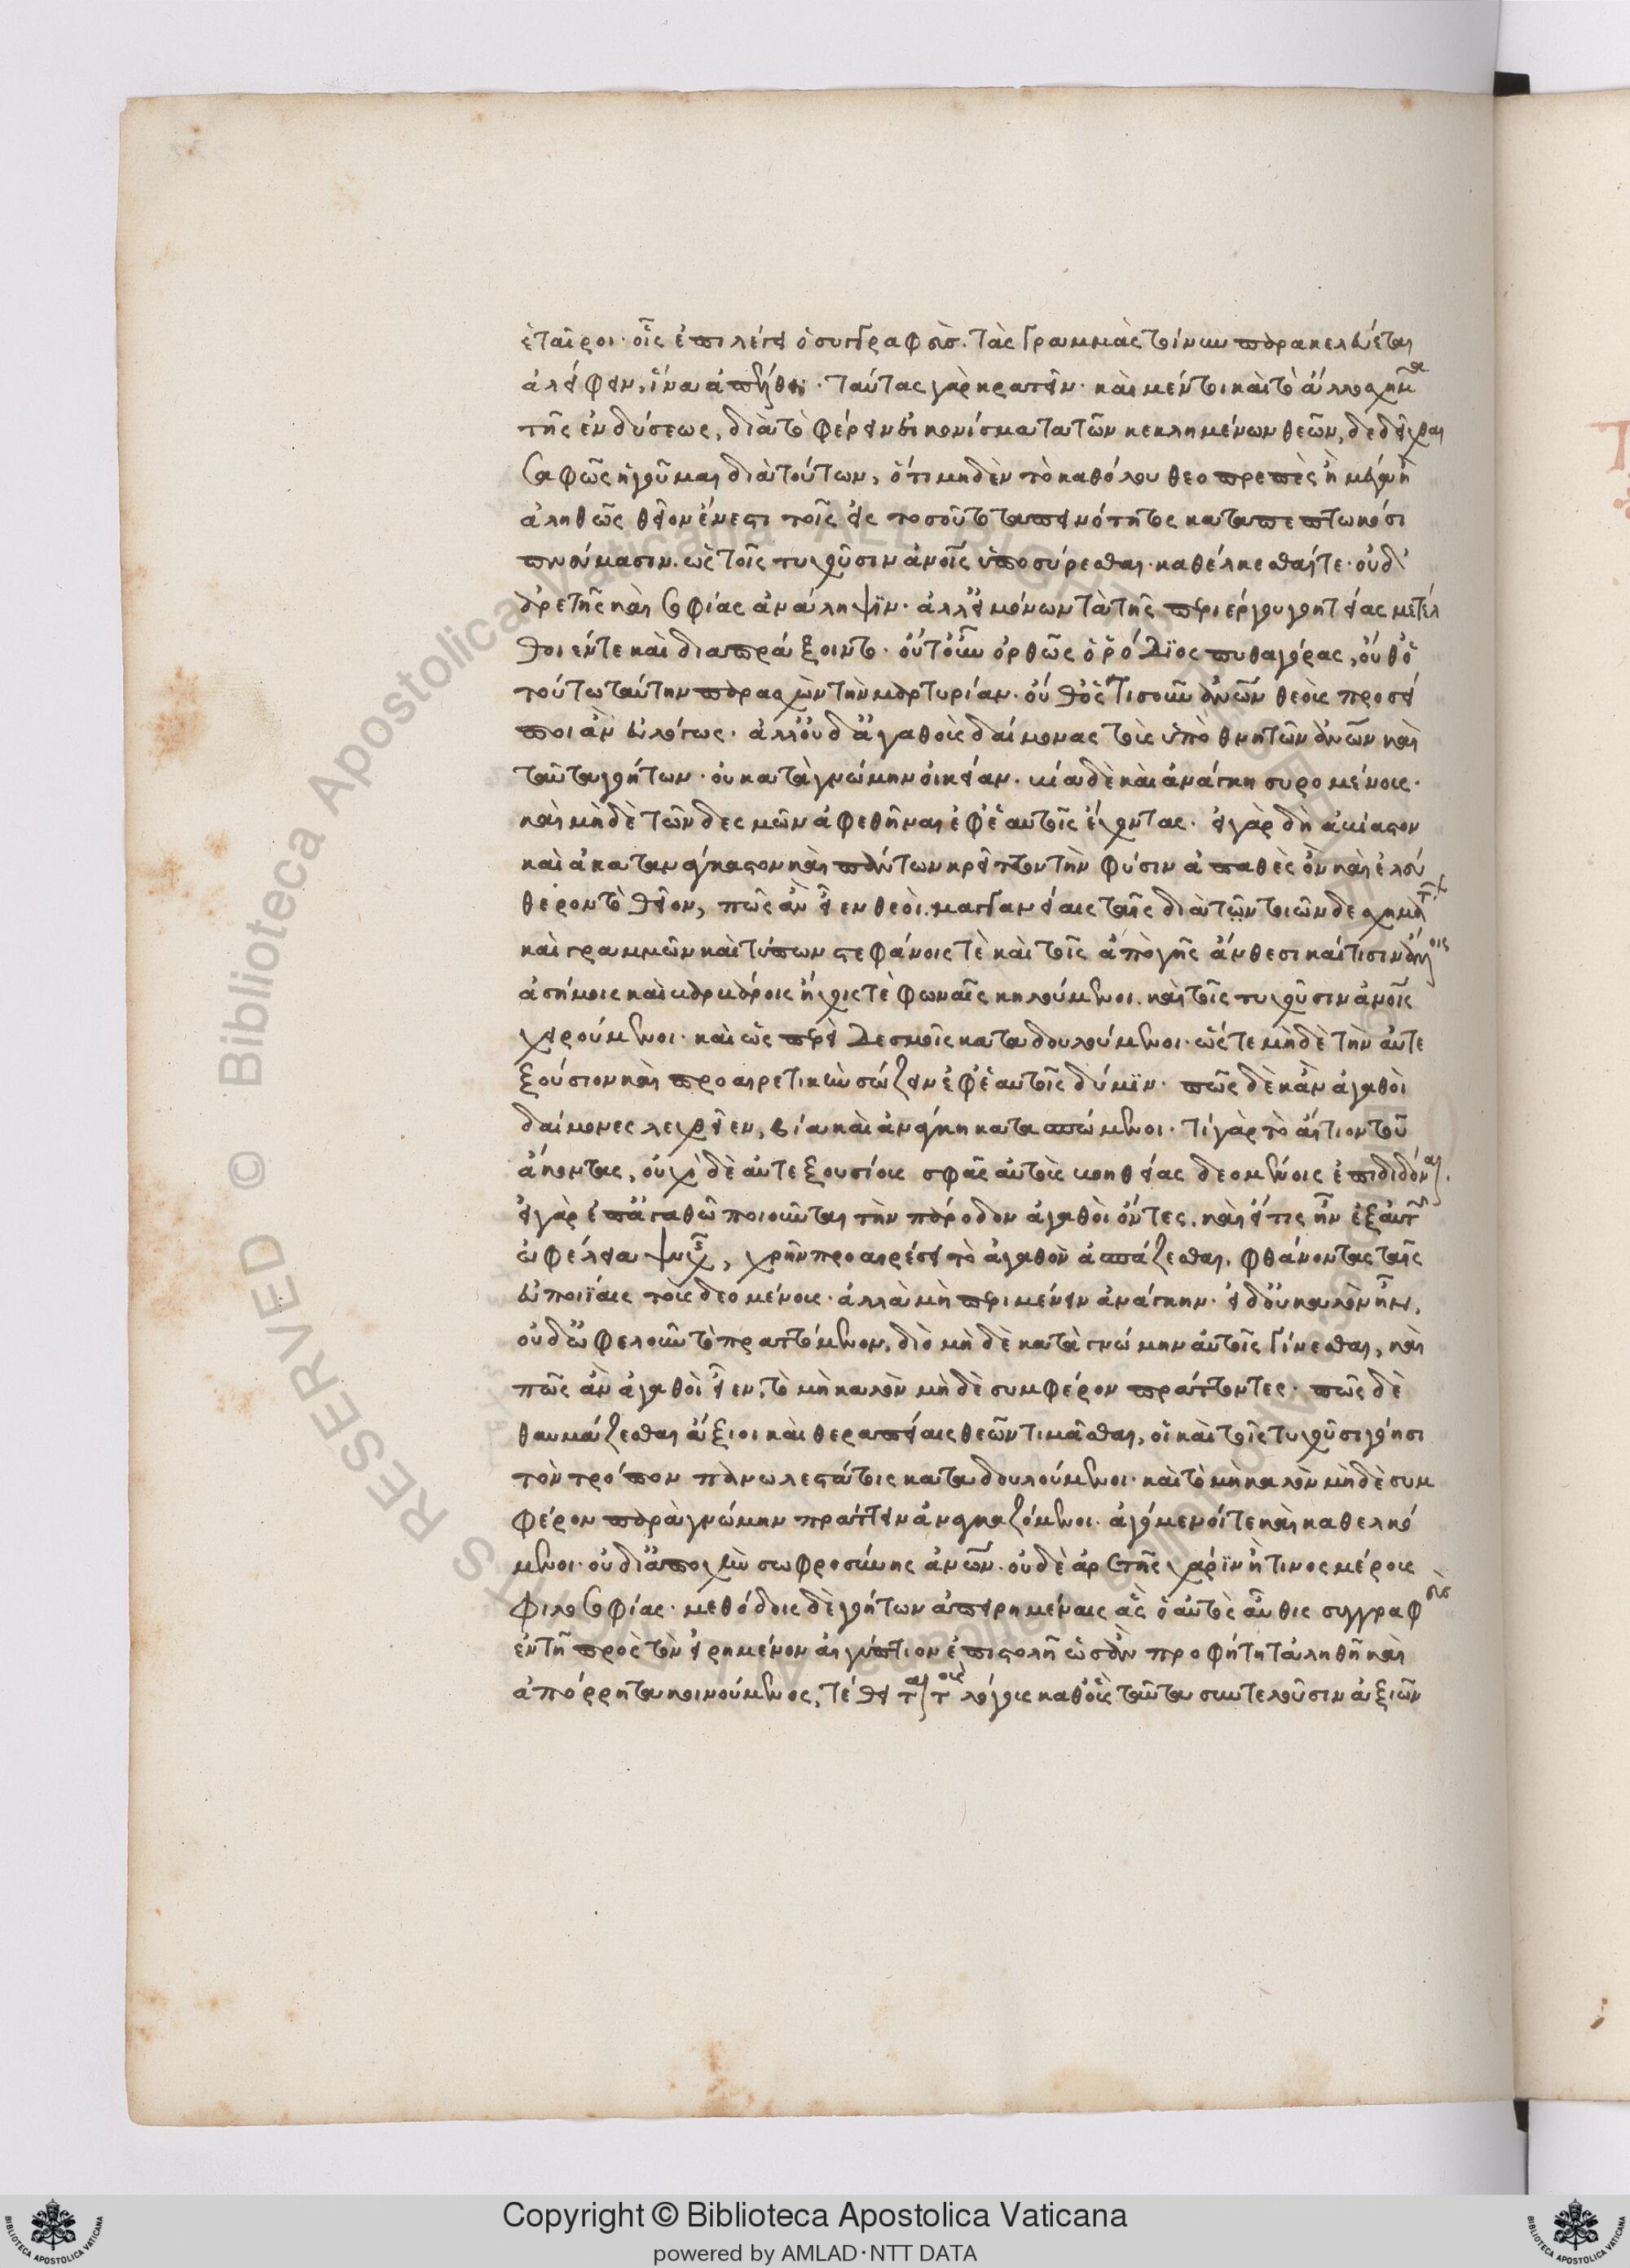 ἑταῖροι· οἷς ἐπιλέγει ὁ συγγραφεύς. τὰς γραμμὰς τοίνυν παρακελεύεται
ἀλείφειν, ἵνα ἀπέλθῃ· ταύτας γὰρ κρατεῖν· καὶ μέντοι καὶ τὸ ἄλλο σχῆμα
τῆς ἐνδύσεως, διὰ τὸ φέρειν εἰκονίσματα τῶν κεκλημένων θεῶν, δεδεῖχθαι
σαφῶς ἡγοῦμαι διὰ τούτων, ὅτι μηδὲν τὸ καθόλου θεοπρεπὲς ἢ μόνον ἢ
ἀληθῶς θεῖον ἔνεστι τοῖς εἰς τοσοῦτο ταπεινότητος καταπεπτωκόσι
πνεύμασιν. ὡς τοῖς τυχοῦσιν ἀνοῖς ὑποσύρεσθαι· καθέλκεσθαί τε· οὐ δι'
ἀρετῆς καὶ σοφίας ἀνάληψιν· ἀλλ' εἰ μόνον τὰ τῆς περιέργου γοητείας μετέλ
θοιέν τε καὶ διαπράξοιντο· οὔτουν ὀρθῶς ὁ Ῥόδιος πυθαγόρας, οὔθ' ὁ
τούτῳ ταύτην παρασχὼν τὴν μαρτυρίαν· οὐ θεοὺς τίς οὖν ἀνῶν θεοὺς προσεί
ποι ἂν εὐλόγως· ἀλλ' οὐδ' ἀγαθοὺς δαίμονας τοὺς ὑπὸ θνητῶν ἀνῶν καὶ
ταῦτα γοήτων· οὐ κατὰ γνώμην οἰκείαν· βίᾳ δὲ καὶ ἀνάγκῃ συρομένους·
καὶ μηδὲ τῶν δεσμῶν ἀφεθῆναι ἐφ' ἑαυτοῖς ἔχοντας· εἰ γὰρ δὴ ἀβίαστον
καὶ ἀκατανάγκαστον καὶ πάντων κρεῖττον τὴν φύσιν ἀπαθὲς ὂν καὶ ἐλεύ
θερον τὸ θεῖον, πῶς ἂν εἶεν θεοὶ μαγγανείαις ταῖς διὰ τῶν τοιῶνδε σχημάτων
καὶ γραμμῶν καὶ τύπων στεφάνοις τὲ καὶ τοῖς ἀπὸ γῆς ἄνθεσι καί τισιν ἄλλοις
ἀσήμοις καὶ βαρβάροις ἤχοις τὲ φωναῖς κηλούμενοι. καὶ τοῖς τυχοῦσιν ἀνοῖς
χειρούμενοι· καὶ ὡς περὶ δεσμοῖς καταδουλούμενοι· ὥς τε μηδὲ τὴν αὐτε
ξούσιον καὶ προαιρετικὴν σώζειν ἐφ' ἑαυτοῖς δύναμιν· πῶς δὲ κἂν ἀγαθοὶ
δαίμονες λεχθεῖεν, βίᾳ καὶ ἀνάγκῃ κατασπώμενοι· τί γὰρ τὸ αἴτιον τοῦ
ἄκοντας, οὐχὶ δὲ αὐτεξουσίους σφᾶς αὐτοὺς βοηθείας δεομένοις ἐπιδιδόναι·
εἰ γὰρ ἐπ' ἀγαθῷ ποιοῦνται τὴν πάροδον ἀγαθοὶ ὄντες. καὶ εἴ τις ἦν ἐξ αὐτῶν
ὠφέλεια ψυχῆς, χρῆν προαιρέσει τὸ ἀγαθὸν ἀσπάζεσθαι, φθάνοντας ταῖς
εὐποιΐαις τοὺς δεομένους· ἀλλὰ μὴ περιμένειν ἀνάγκην· εἰ δ' οὐ καλὸν ἦν,
οὐδ' ὠφελοῦν τὸ πραττόμενον, διὸ μὴ δὲ κατὰ γνώμην αὐτοῖς γίνεσθαι, καὶ
πῶς ἂν ἀγαθοὶ εἶεν, τὸ μὴ καλὸν μὴ δὲ συμφέρον πράττοντες· πῶς δὲ
θαυμάζεσθαι ἄξιοι καὶ θεραπείαις θεῶν τιμᾶσθαι, οἱ καὶ τοῖς τυχοῦσι γόησι
τὸν τρόπον πανωλεστάτοις καταδουλούμενοι· καὶ τὸ μὴ καλὸν μὴ δὲ συμ
φέρον παρὰ γνώμην πράττειν ἀναγκαζόμενοι· ἀγόμενοί τε καὶ καθελκό
μενοι· οὐ δι' ἀποχὴν σωφροσύνης ἀνῶν· οὐδὲ ἀρετῆς χάριν ἤ τινος μέρους
φιλοσοφίας· μεθόδοις δὲ γοήτων ἀπειρημέναις ἃς ὁ αὐτὸς αὖθις συγγραφεὺς
ἐν τῇ πρὸς τὸν εἰρημένον αἰγύπτιον ἐπιστολῇ ὡς ἂν προφήτῃ τἀληθῆ καὶ
ἀπόρρητα κοινούμενος, τέθειται τοὺς λόγους καθ' οὓς ταῦτα συντελοῦσιν ἀξιῶν
Copyright © Biblioteca Apostolica Vaticana
powered by AMLAD·NTT DATA